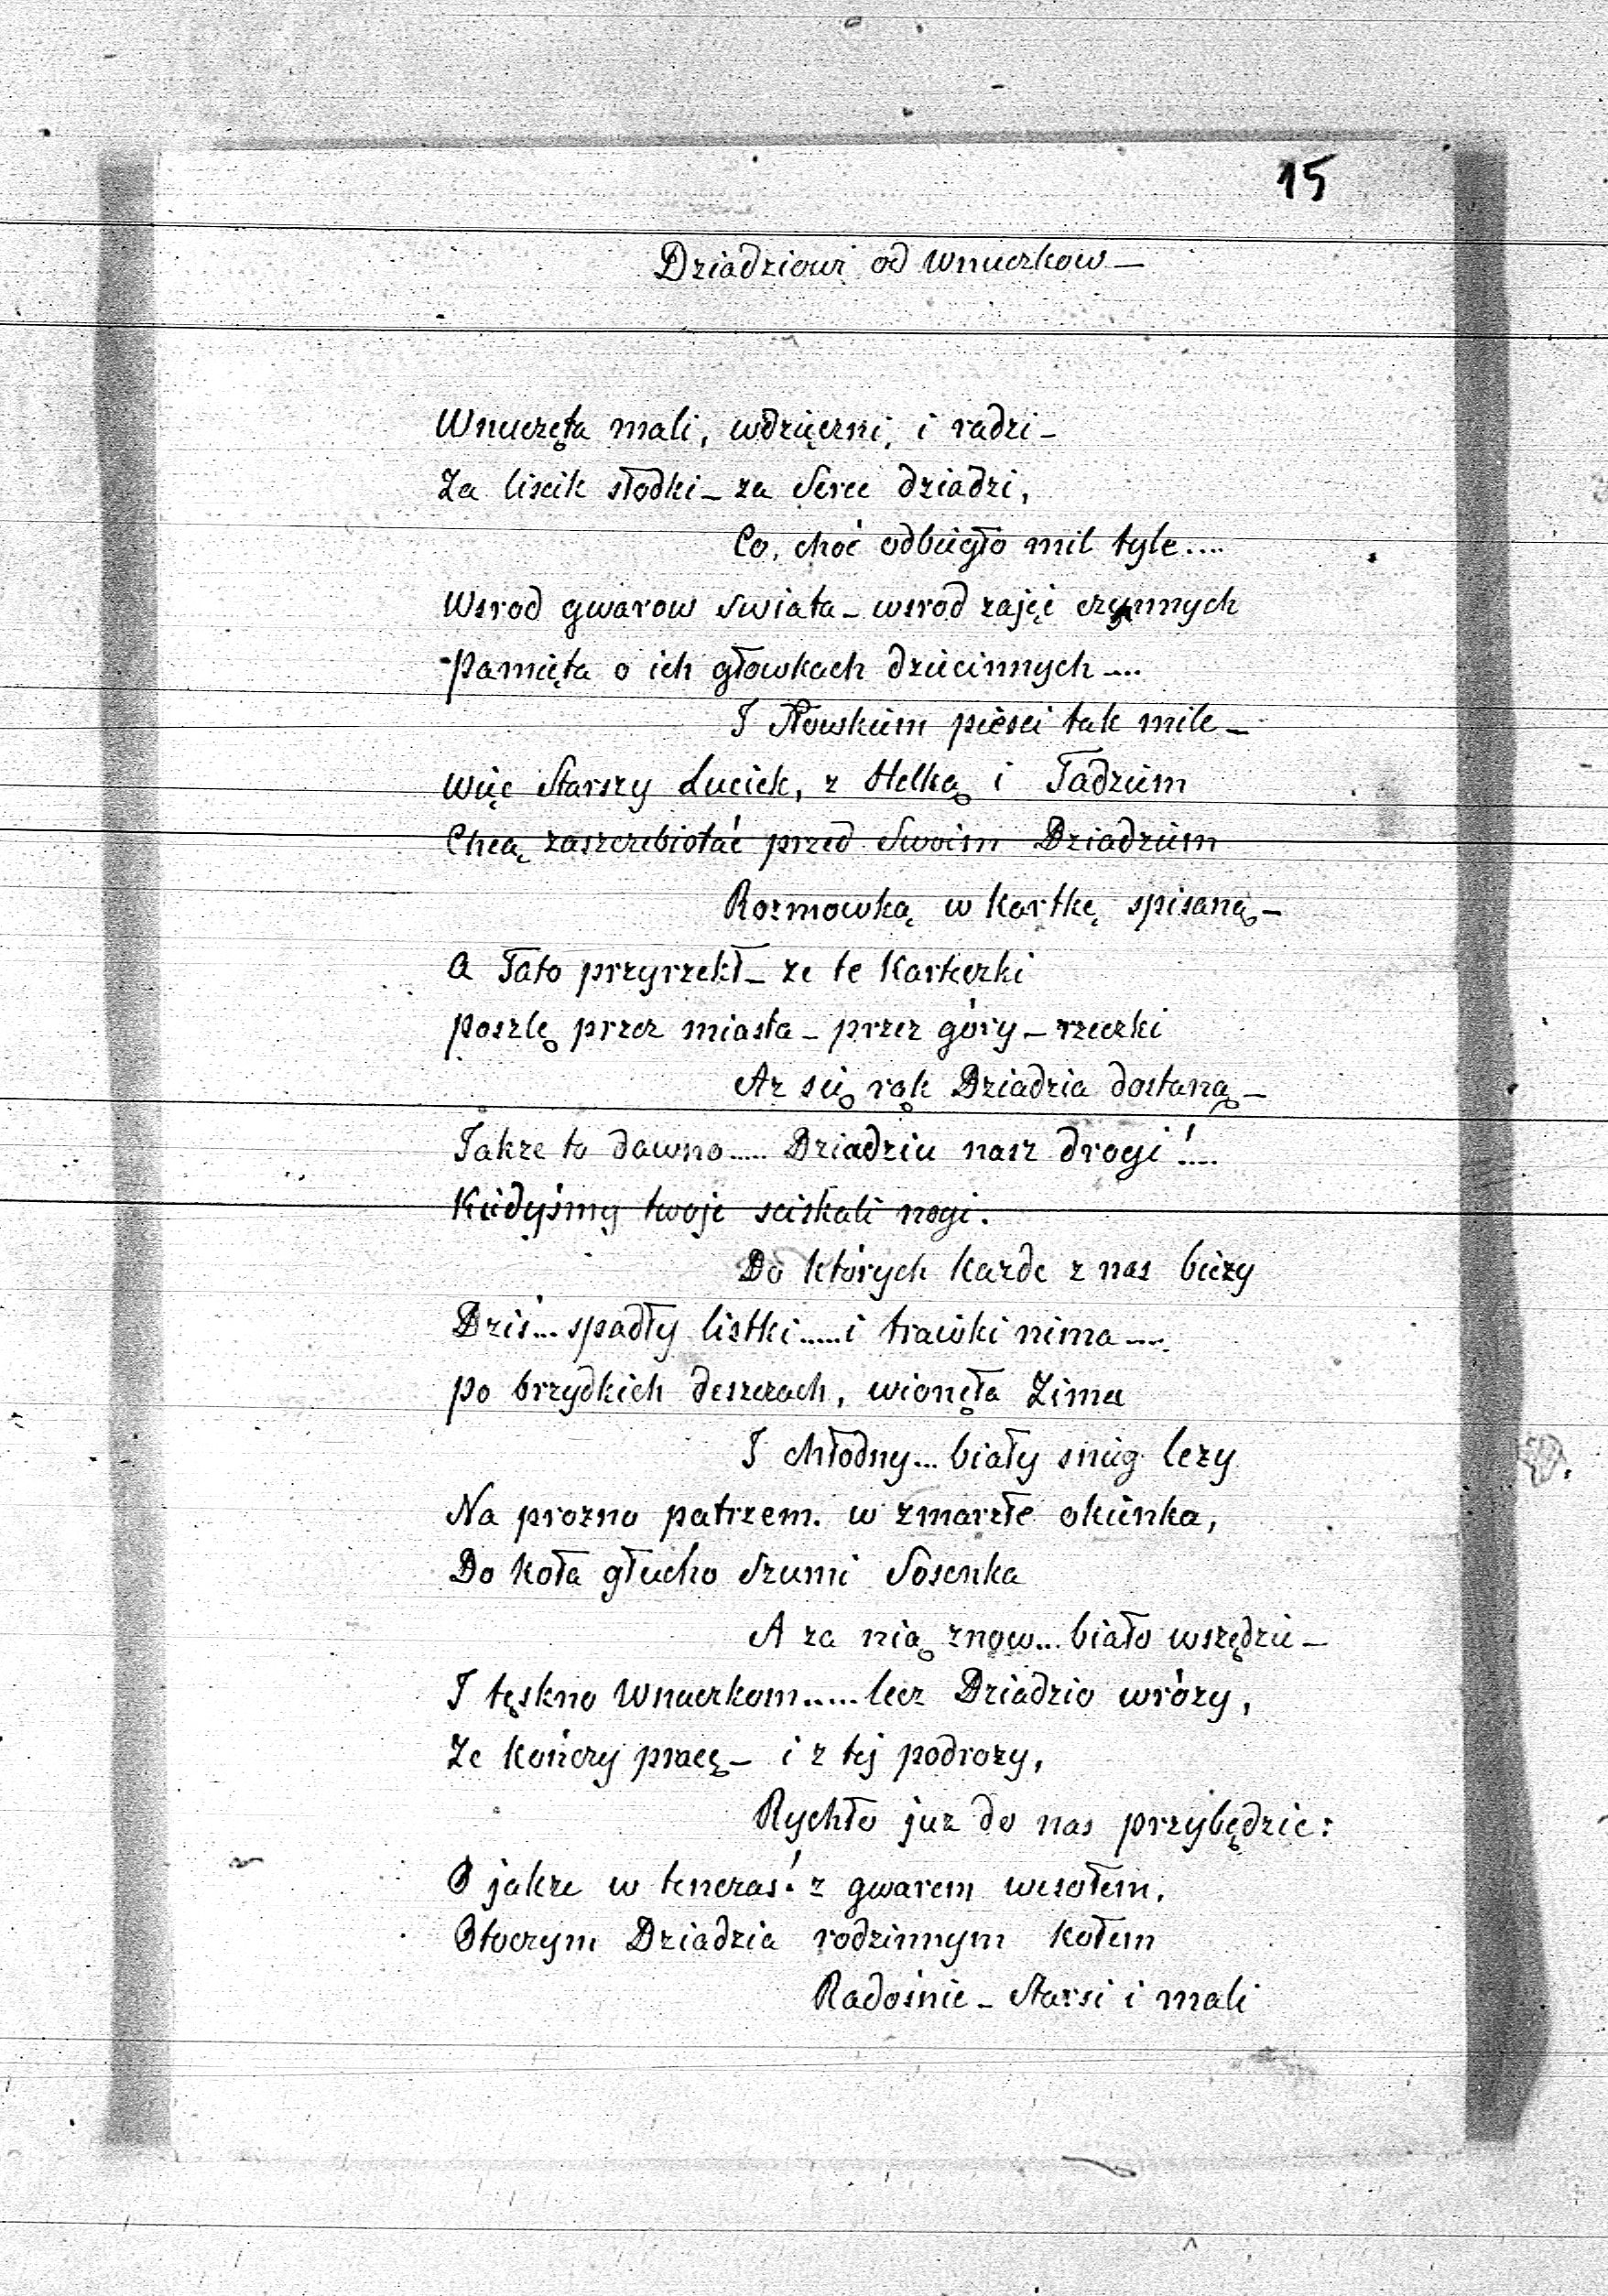 15
Dziadziowi od wnuczkow —
Wnuczęta mali, wdzięczni, i radzi —
Za liscik słodki — za Serce dziadzi,
Co, choć odbiegło mil tyle....
Wsrod gwarow Swiata — wsrod zajęć czynnych
Pamięta o ich głowkach dziecinnych ....
I Słowkiem pieści tak mile —
Więc Starszy Luciek, z Helką i Tadziem
Chcą zaszczebiotać przed Swoim Dziadziem
Rozmowką w Kartkę spisaną —
A Tato przyrzekł — ze te Karteczki
Poszlę przez miasta — przez góry — rzeczki
Az się rąk Dziadzia dostaną —
Takze to dawno ..... Dziadziu nasz drogi! ....
Kiedyśmy twoje sciskali nogi.
Do których Kazde z nas bieży
Dziś... spadły listki ..... i trawki nima .....
Po brzydkich deszczach, wionęła Zima
I chłodny... biały snieg lezy
Na prozno patrzem. w zmarzłe okienka,
Do Koła głucho Szumi Sosenka
A za nią znow... biało wszędzie —
I tęskno Wnuczkom ..... lecz Dziadzio wróży,
Ze Kończy pracę — i z tej podrozy,
Rychło juz do nas przybędzie:
O jakze w tenczas! z gwarem wesołem,
Otoczym Dziadzia rodzinnym Kołem
Radośnie — Starsi i mali